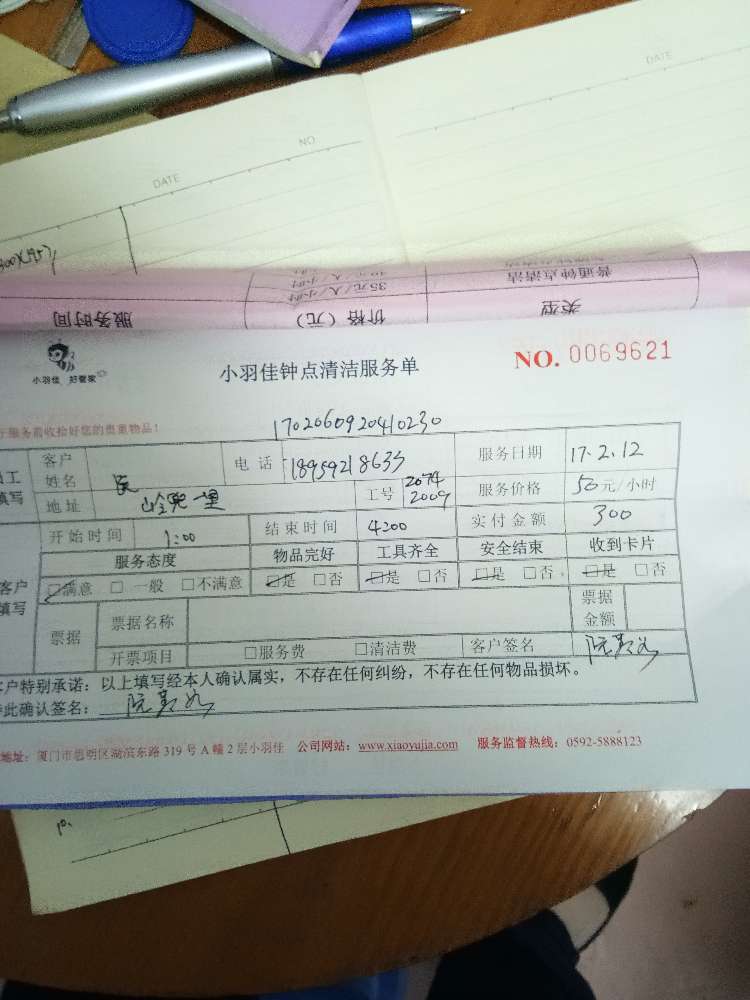 DATE
NO
DATE
普通钟点清洁
35元/人/小时
类型
价格（元）
服务时间
小羽佳 好管家
小羽佳钟点清洁服务单
NO. 0069621
服务前收拾好您的贵重物品！
1702060920410230
客户姓名
电话 18959218633
服务日期 17.2.12
填写 地址
工号 2074 2009
服务价格 50元/小时
开始时间 1:00
结束时间 4200
实付金额 300
服务态度 物品完好 工具齐全 安全结束 收到卡片
客户填写
☑满意 □一般 □不满意 ☑是 □否 ☑是 □否 ☑是 □否 ☑是 □否
票据 票据名称 票据金额
开票项目 □服务费 □清洁费 客户签名
客户特别承诺：以上填写经本人确认属实，不存在任何纠纷，不存在任何物品损坏。
此确认签名：
地址：厦门市思明区湖滨东路 319 号 A 幢 2 层小羽佳 公司网站：www.xiaoyujia.com 服务监督热线：0592-5888123